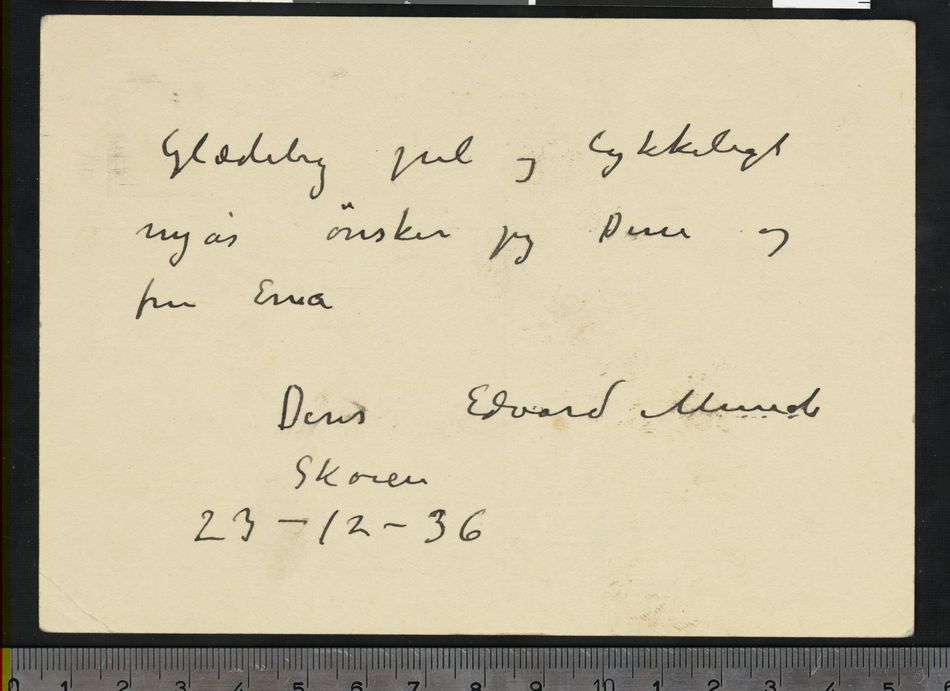 Glædelig jul og lykkeligt
nyår önsker jeg Dem og
fru Erna
Deres Edvard Munch
Skøien
23-12-36
0 1 2 3 4 5 6 7 8 9 10 1 2 3 4 5